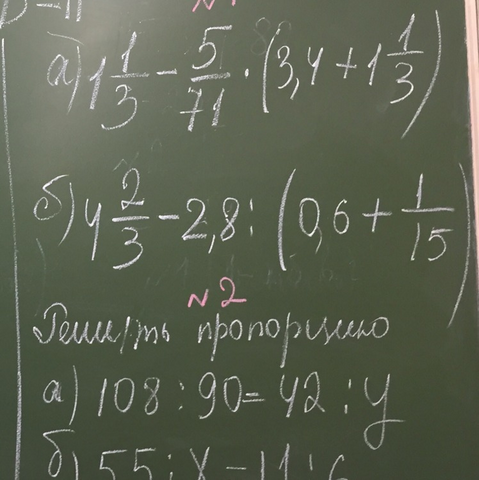 а) 1 1/3 - 5/71 · (3,4 + 1 1/3)
б) 4 2/3 - 2,8 : (0,6 + 1/15)
№2
Решить пропорцию
а) 108 : 90 = 42 : y
б) 55 : x = 11 :